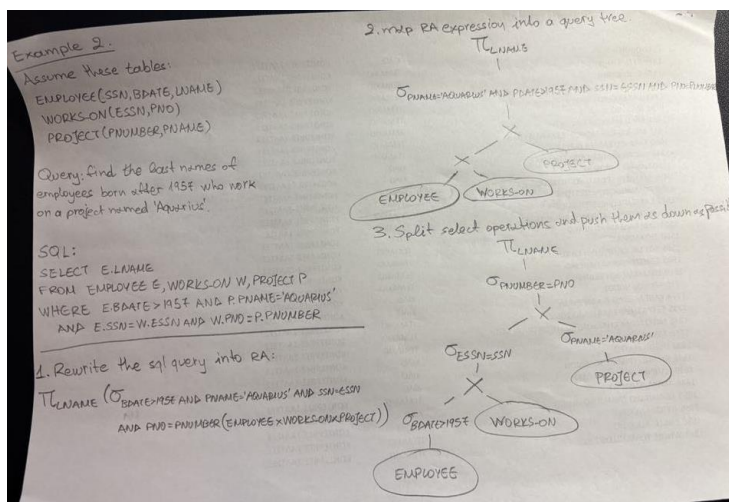 Example 2.
Assume these tables:
EMPLOYEE(SSN,BDATE,LNAME)
WORKS-ON(ESSN,PNO)
PROJECT(PNUMBER,PNAME)
Query: find the last names of
employees born after 1957 who work
on a project named 'Aquarius'.
SQL:
SELECT E.LNAME
FROM EMPLOYEE E, WORKS-ON W, PROJECT P
WHERE E.BDATE>1957 AND P.PNAME='AQUARIUS'
AND E.SSN=W.ESSN AND W.PNO=P.PNUMBER
1. Rewrite the sql query into RA:
π LNAME (σ BDATE>1957 AND PNAME='AQUARIUS' AND SSN=ESSN
AND PNO=PNUMBER (EMPLOYEE×WORKS-ON×PROJECT))
2. map RA expression into a query tree.
π LNAME
σ PNAME='AQUARIUS' AND BDATE>1957 AND SSN=ESSN AND PNO=PNUMBER
×
× PROJECT
EMPLOYEE WORKS-ON
3. Split select operations and push them as down as possi
π LNAME
σ PNUMBER=PNO
×
σ ESSN=SSN σ PNAME='AQUARIUS'
× PROJECT
σ BDATE>1957 WORKS-ON
EMPLOYEE